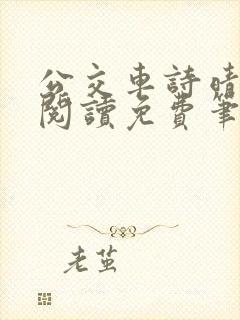 公交車詩晴
閱讀免費筆
老茧